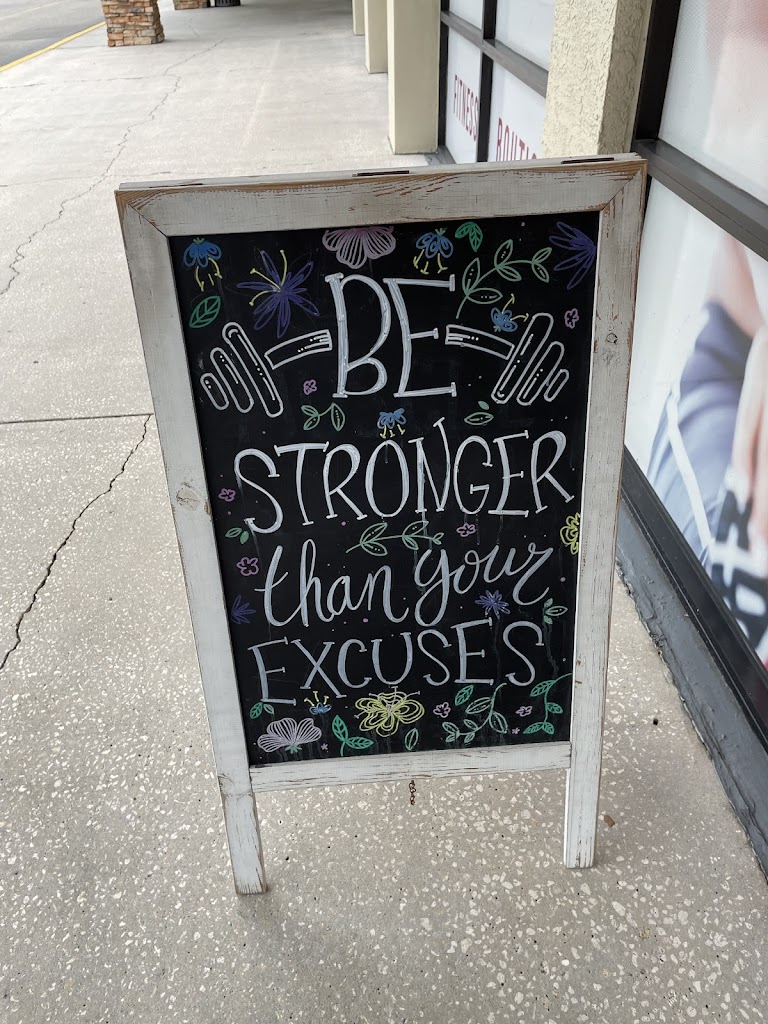 FITNESS
BOUTIQ
BE
STRONGER
than your
EXCUSES